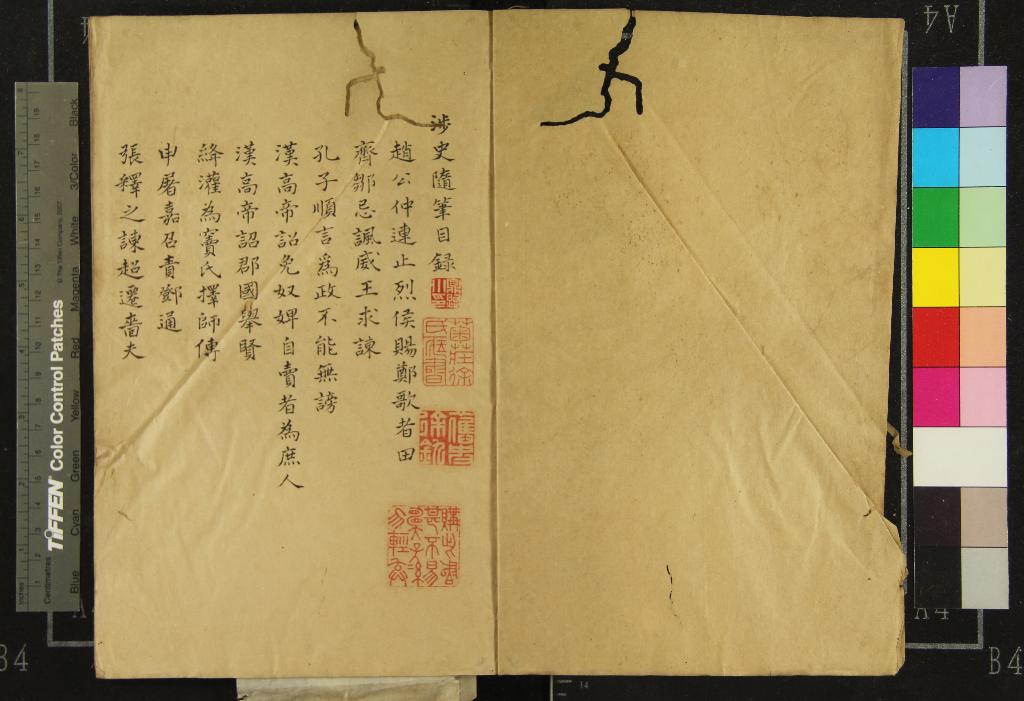 涉史隨筆目録
趙公仲連止烈侯賜鄭歌者田
齊鄒忌諷威王求諫
孔子順言爲政不能無謗
漢高帝詔免奴婢自賣者為庶人
漢高帝詔郡國舉賢
絳灌為竇氏擇師傅
申屠嘉召責鄧通
張釋之諫超遷嗇夫
菊莊徐氏藏書
購此書甚不易願子孫勿輕棄
TIFFEN Color Control Patches
© The Tiffen Company, 2007
Inches
Centimetres
Blue
Cyan
Green
Yellow
Red
Magenta
White
3/Color
Black
A4
A4
B4
B4